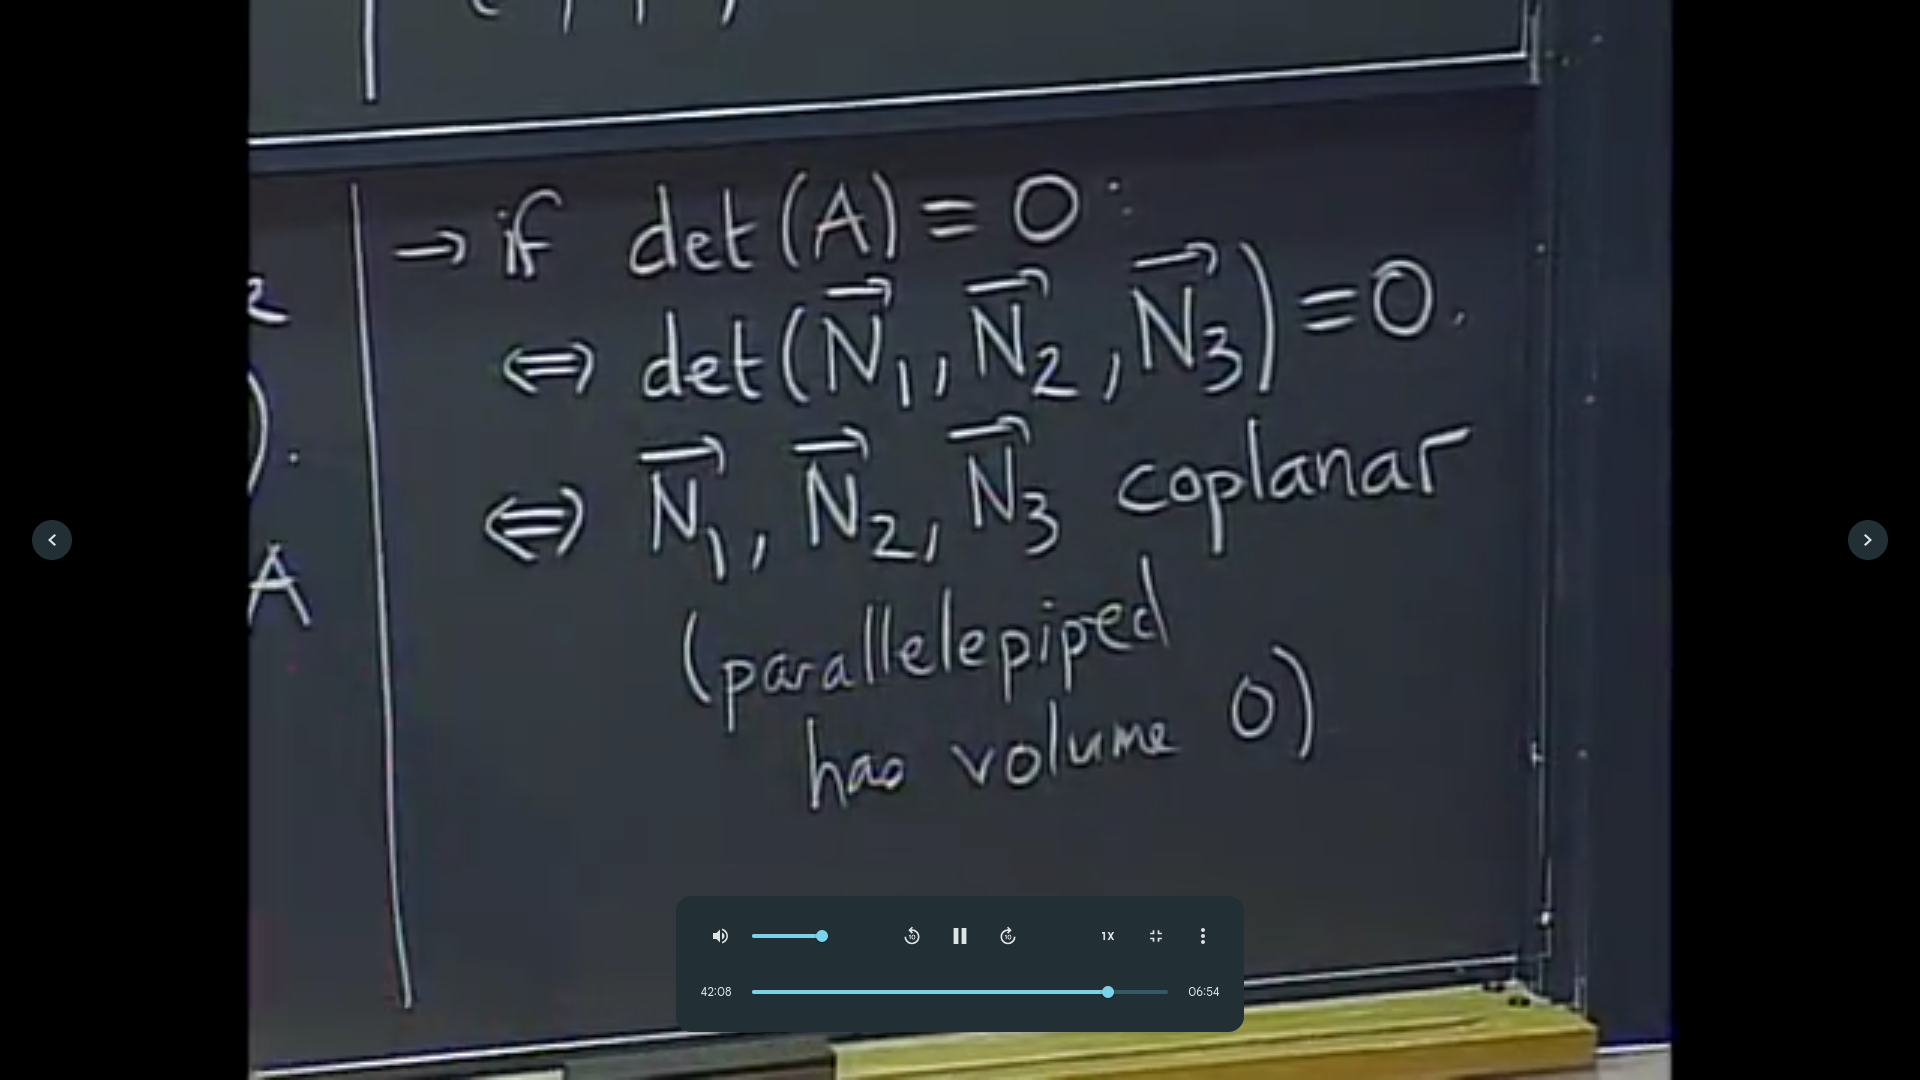 → if det(A) = 0:
⇔ det(N⃗₁, N⃗₂, N⃗₃) = 0.
⇔ N⃗₁, N⃗₂, N⃗₃ coplanar
(parallelepiped
has volume 0)
A
10
10
1X
42:08
06:54